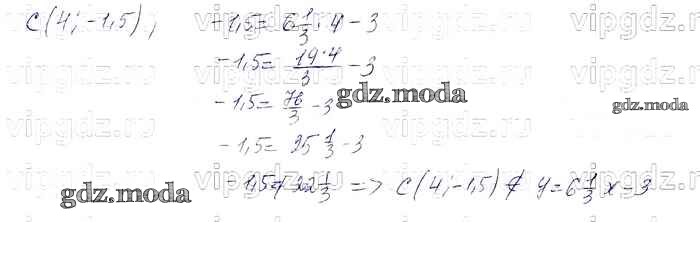 C(4; -1,5); -1,5 = 6 1/3 · 4 - 3
-1,5 = 19·4/3 - 3
-1,5 = 76/3 - 3
gdz.moda
gdz.moda
-1,5 = 25 1/3 - 3
-1,5 ≠ 22 1/3 => C(4; -1,5) ∉ y = 6 1/3 x - 3
gdz.moda
vipgdz.ru vipgdz.ru vipgdz.ru vipgdz.ru
vipgdz.ru vipgdz.ru vipgdz.ru vipgdz.ru
vipgdz.ru vipgdz.ru vipgdz.ru vipgdz.ru